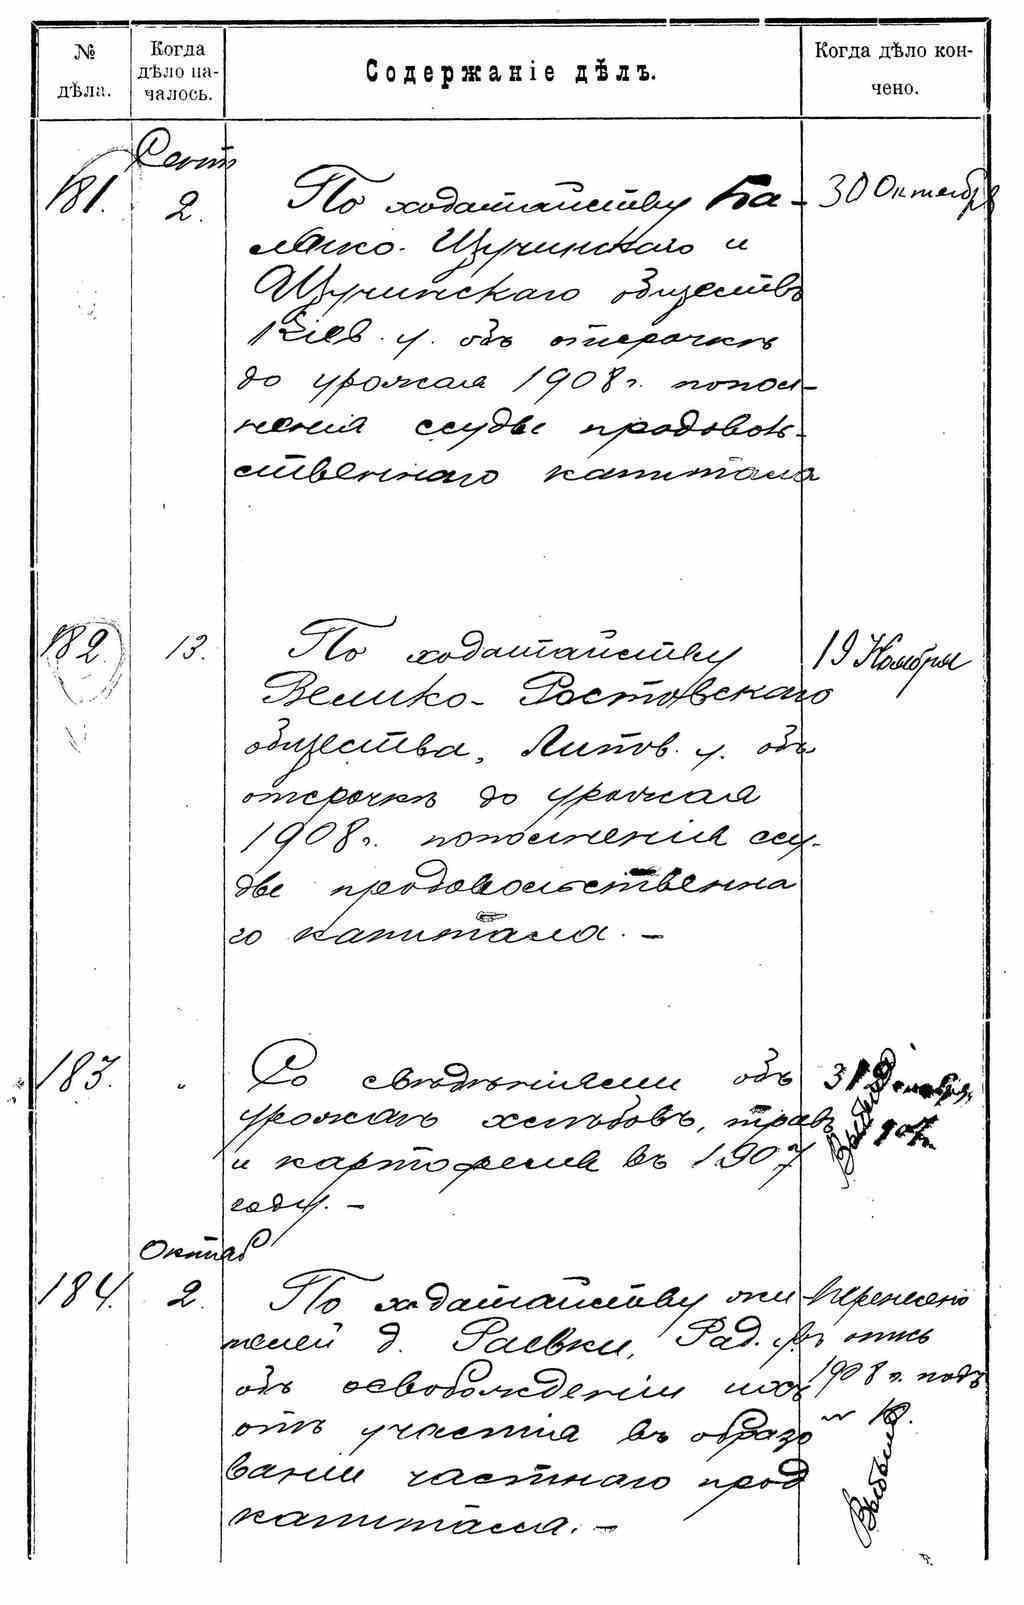 № дѣла.
Когда дѣло на-
чалось.
Содержаніе дѣлъ.
Когда дѣло кон-
чено.
Сент
181.
2.
По ходатайству Ба-
ико-Щучинскаго и
Щучинскаго обществъ
Кіев. у. объ отсрочкѣ
до урожая 1908 г. попол-
ненія ссудъ продоволь-
ственнаго капитала
30 Октября
182
13.
По ходатайству
Велико-Ростовскаго
общества, Липов. у. объ
отсрочкѣ до урожая
1908 г. пополненія ссу-
дъ продовольственна
го капитала. —
19 Ноября
183.
"
Со свѣдѣніями объ
урожаѣ хлѣбовъ, травъ
и картофеля въ 1907
году. —
31 Декабря
907 г.
Выбыло
Октяб
184.
2.
По ходатайству жи
телей д. Раевки, Рад. у.
объ освобожденіи ихъ
отъ участія въ образо
ваніи частнаго прод
капитала. —
Перенесено
въ опись
1908 г. подъ
№ 10.
Выбыло